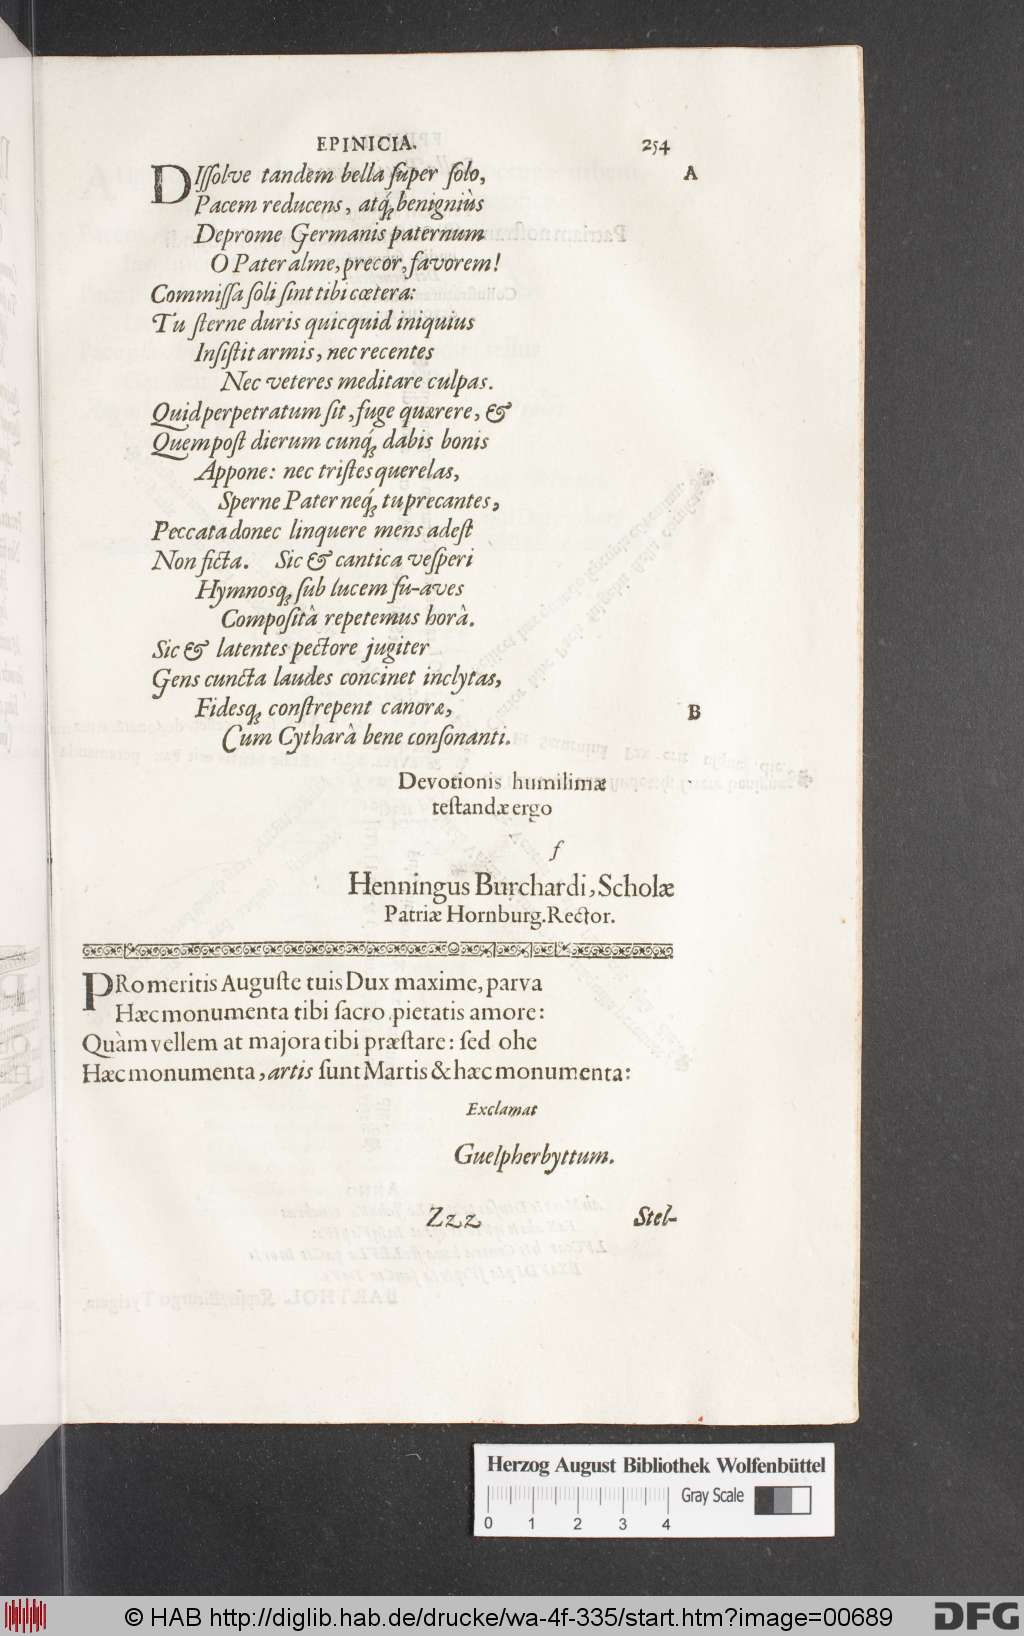 EPINICIA. 254
DIſſolve tandem bella ſuper ſolo, A
Pacem reducens, atq́; benigniùs
Deprome Germanis paternum
O Pater alme, precor, favorem!
Commiſſa ſoli ſint tibi cætera:
Tu ſterne duris quicquid iniquius
Inſiſtit armis, nec recentes
Nec veteres meditare culpas.
Quid perpetratum ſit, fuge quærere, &
Quem poſt dierum cunq́; dabis bonis
Appone: nec triſtes querelas,
Sperne Pater neq́; tu precantes,
Peccata donec linquere mens adeſt
Non ficta. Sic & cantica veſperi
Hymnosq; ſub lucem ſu-aves
Compoſitâ repetemus horâ.
Sic & latentes pectore jugiter
Gens cuncta laudes concinet inclytas,
Fidesq; conſtrepent canoræ, B
Cum Cytharâ bene conſonanti.
Devotionis humilimæ
teſtandæ ergo
f
Henningus Burchardi, Scholæ
Patriæ Hornburg. Rector.
PRo meritis Auguſte tuis Dux maxime, parva
Hæc monumenta tibi ſacro pietatis amore:
Quàm vellem at majora tibi præſtare: ſed ohe
Hæc monumenta, artis ſunt Martis & hæc monumenta:
Exclamat
Guelpherbyttum.
Zzz Stel-
Herzog August Bibliothek Wolfenbüttel
Gray Scale
0 1 2 3 4
© HAB http://diglib.hab.de/drucke/wa-4f-335/start.htm?image=00689 DFG